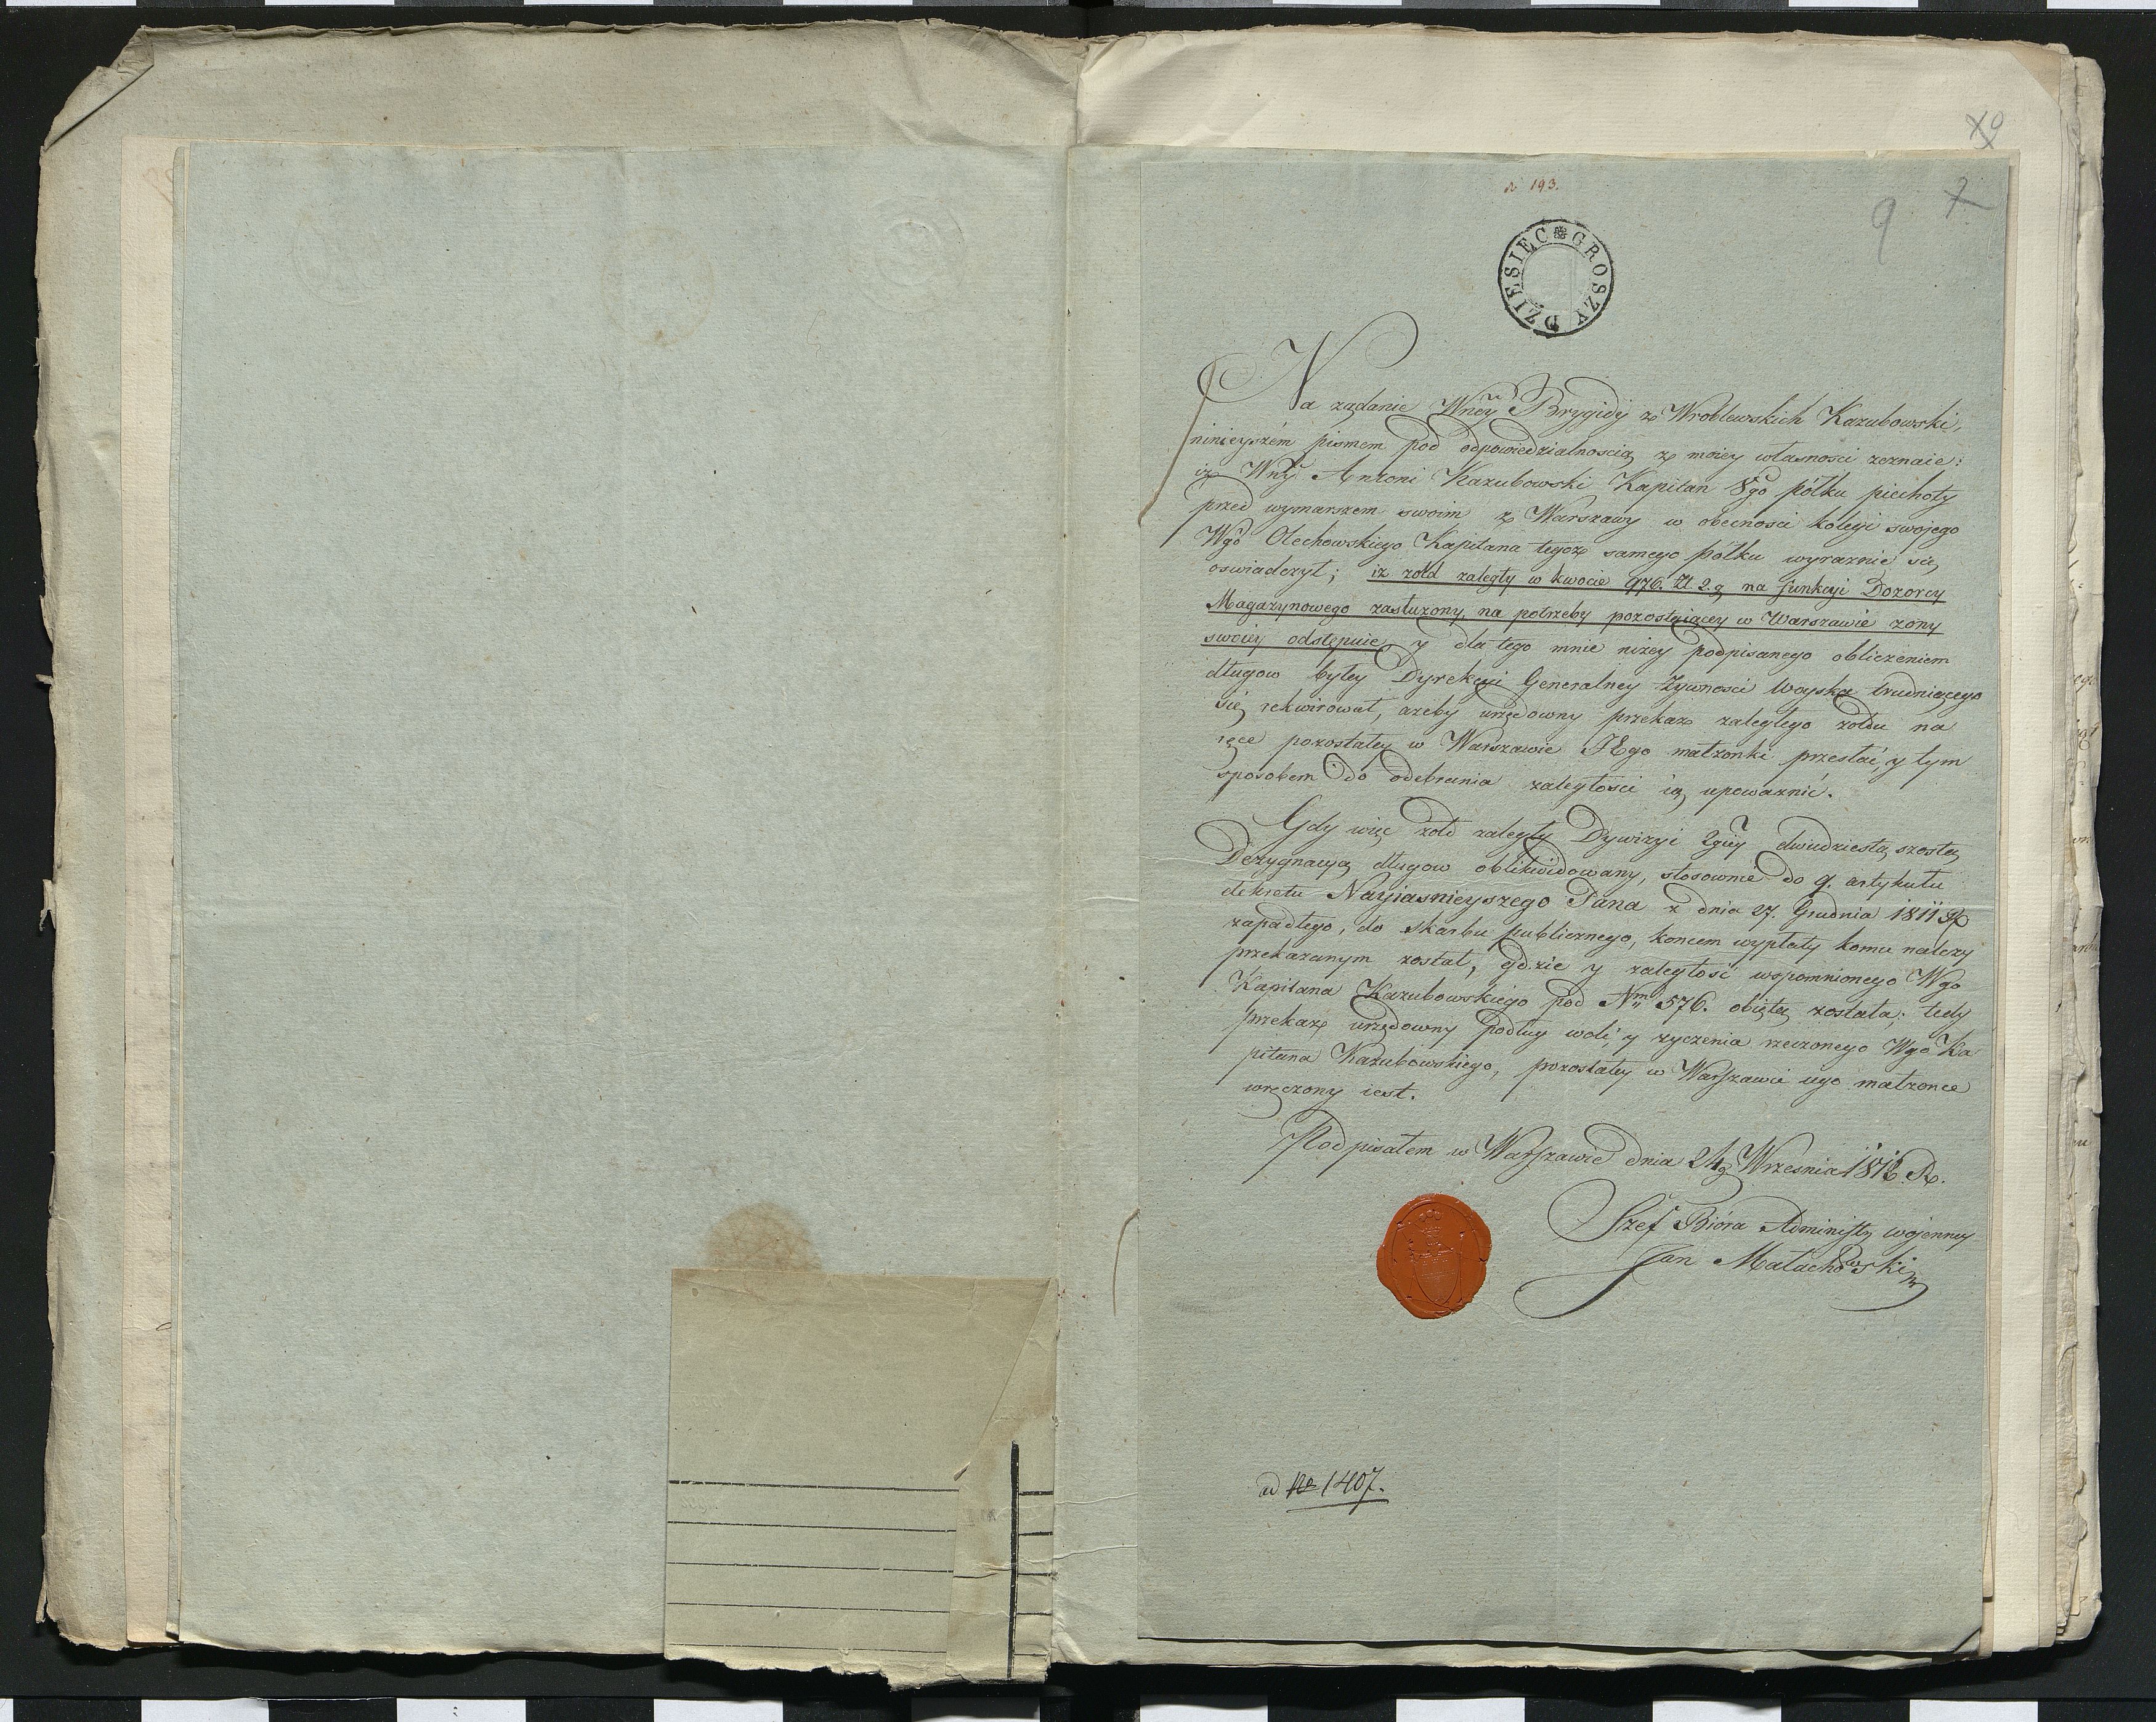 x9
№ 193.
9 7
DZIESIEC GROSZY
Na żądanie Wney Brygidy z Wroblewskich Kazubowski,
ninieyszém pismem pod odpowiedzialnoscią z moiey własnosci zeznaie:
iż Wny Antoni Kazubowski Kapitan 8go pólku piechoty
przed wymarszem swoim z Warszawy w obecnosci kolegi swojego
Wgo Olechowskiego Kapitana tegoż samego pólku wyraznie się
oswiadczył; iż żołd zaległy w kwocie 976. Zł. 2. g na funkcyi Dozorcy
Magazynowego zasłużony, na potrzeby pozostaiącey w Warszawie zony
swoiey odstępuie, y dla tego mnie niżey podpisanego obliczeniem
długow byłey Dyrekcyi Generalney Żywnosci Woyska trudniącego
się rekwirował, ażeby urzędowny przekaz zaległego żołdu na
ręce pozostałey w Warszawie JEgo małżonki przesłać, y tym
sposobem do odebrania zaległosci ią upoważnić.
Gdy więc żołd zaległy Dywizyi 2giey dwudziestą szostą
Dezygnacyą długow oblikwidowany, stosownie do 9. artykułu
dekretu Nayiasnieyszego Pana z dnia 27. Grudnia 1811 R
zapadłego, do skarbu publicznego, koncem wypłaty komu należy
przekazanym został, gdzie y zaległość wspomnionego Wgo
Kapitana Kazubowskiego pod Nrm 576. obięta została; tedy
przekaz urzędowny podług woli, y życzenia rzeczonego Wgo Ka
pitana Kazubowskiego, pozostałey w Warszawie iego małżonce
wręczony iest.
Podpisałem w Warszawie dnia 24g Wrzesnia 1812. R.
Szef Bióra Administr wojenney
Jan Małachowski
ad № 1407.